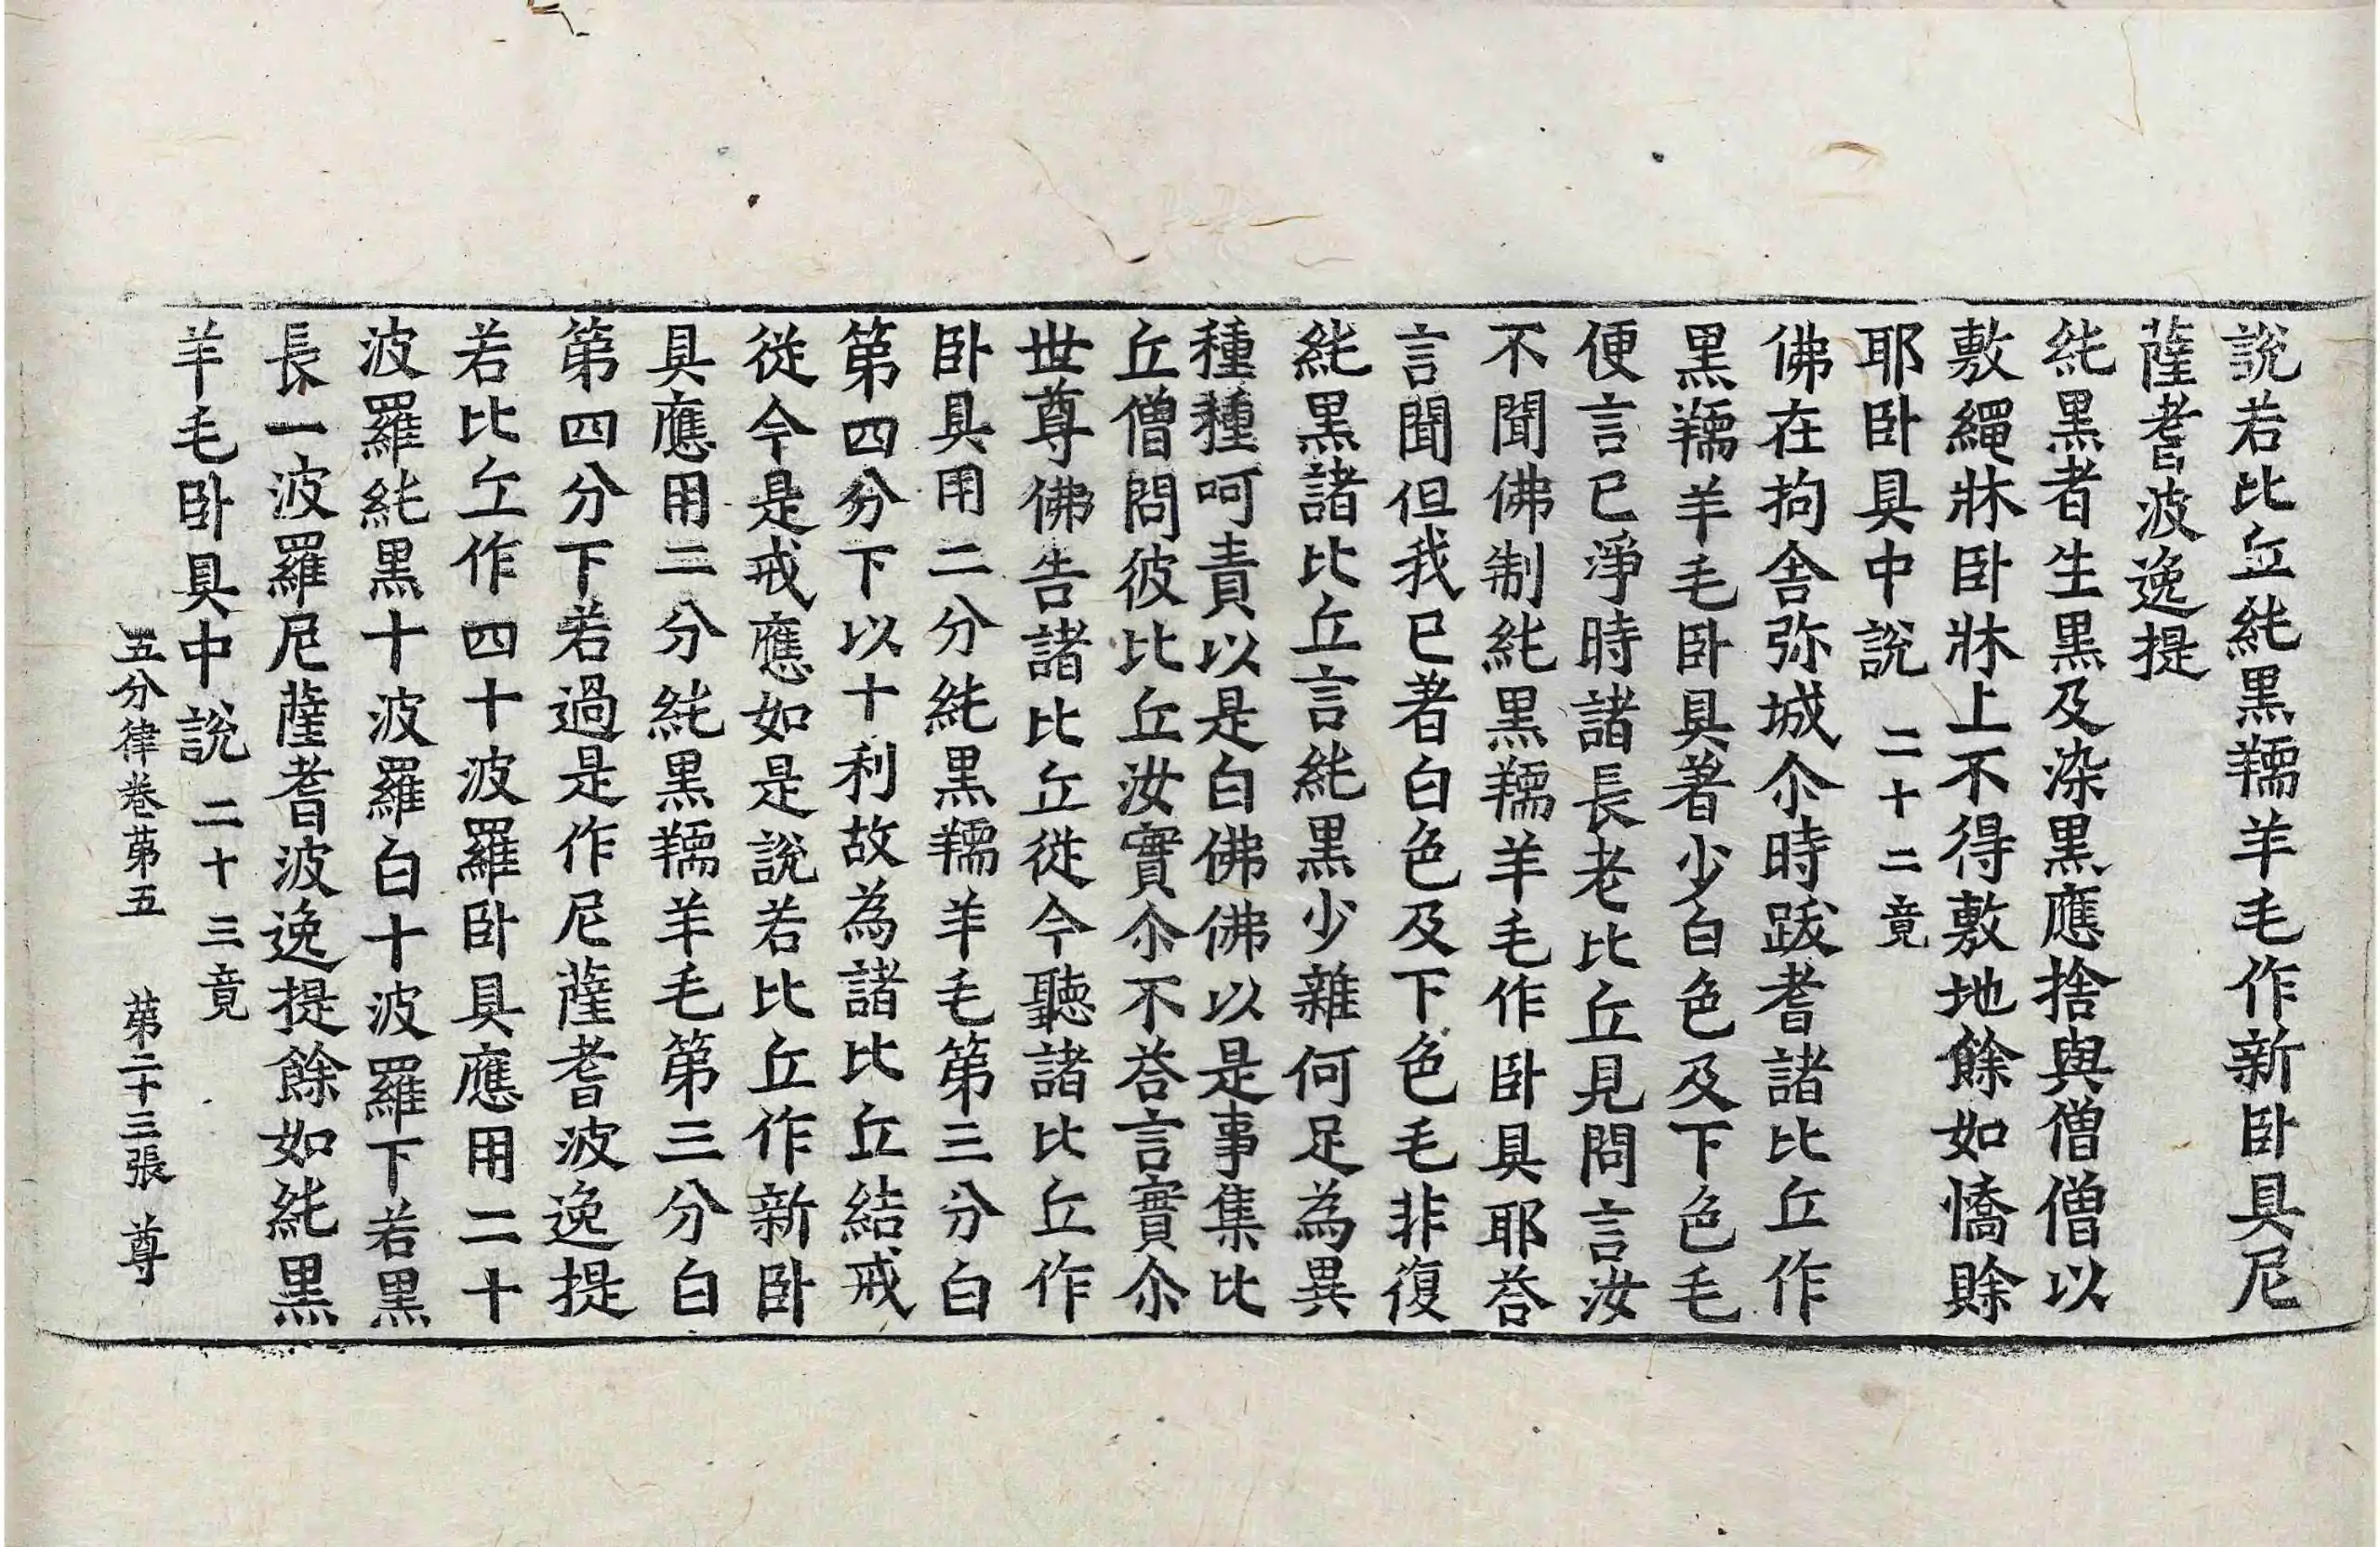 說若比丘純黑羺羊毛作新卧具尼
薩耆波逸提
純黑者生黑及染黑應捨與僧僧以
敷繩牀卧牀上不得敷地餘如憍賒
耶卧具中說 二十二竟
佛在拘舍弥城尒時跋耆諸比丘作
黑羺羊毛卧具著少白色及下色毛
便言已淨時諸長老比丘見問言汝
不聞佛制純黑羺羊毛作卧具耶荅
言聞但我已著白色及下色毛非復
純黑諸比丘言純黑少雜何足為異
種種呵責以是白佛佛以是事集比
丘僧問彼比丘汝實尒不荅言實尒
世尊佛告諸比丘從今聽諸比丘作
卧具用二分純黑羺羊毛第三分白
第四分下以十利故為諸比丘結戒
從今是戒應如是說若比丘作新卧
具應用二分純黑羺羊毛第三分白
第四分下若過是作尼薩耆波逸提
若比丘作四十波羅卧具應用二十
波羅純黑十波羅白十波羅下若黑
長一波羅尼薩耆波逸提餘如純黑
羊毛卧具中說 二十三竟
五分律卷苐五 苐二十三張 尊